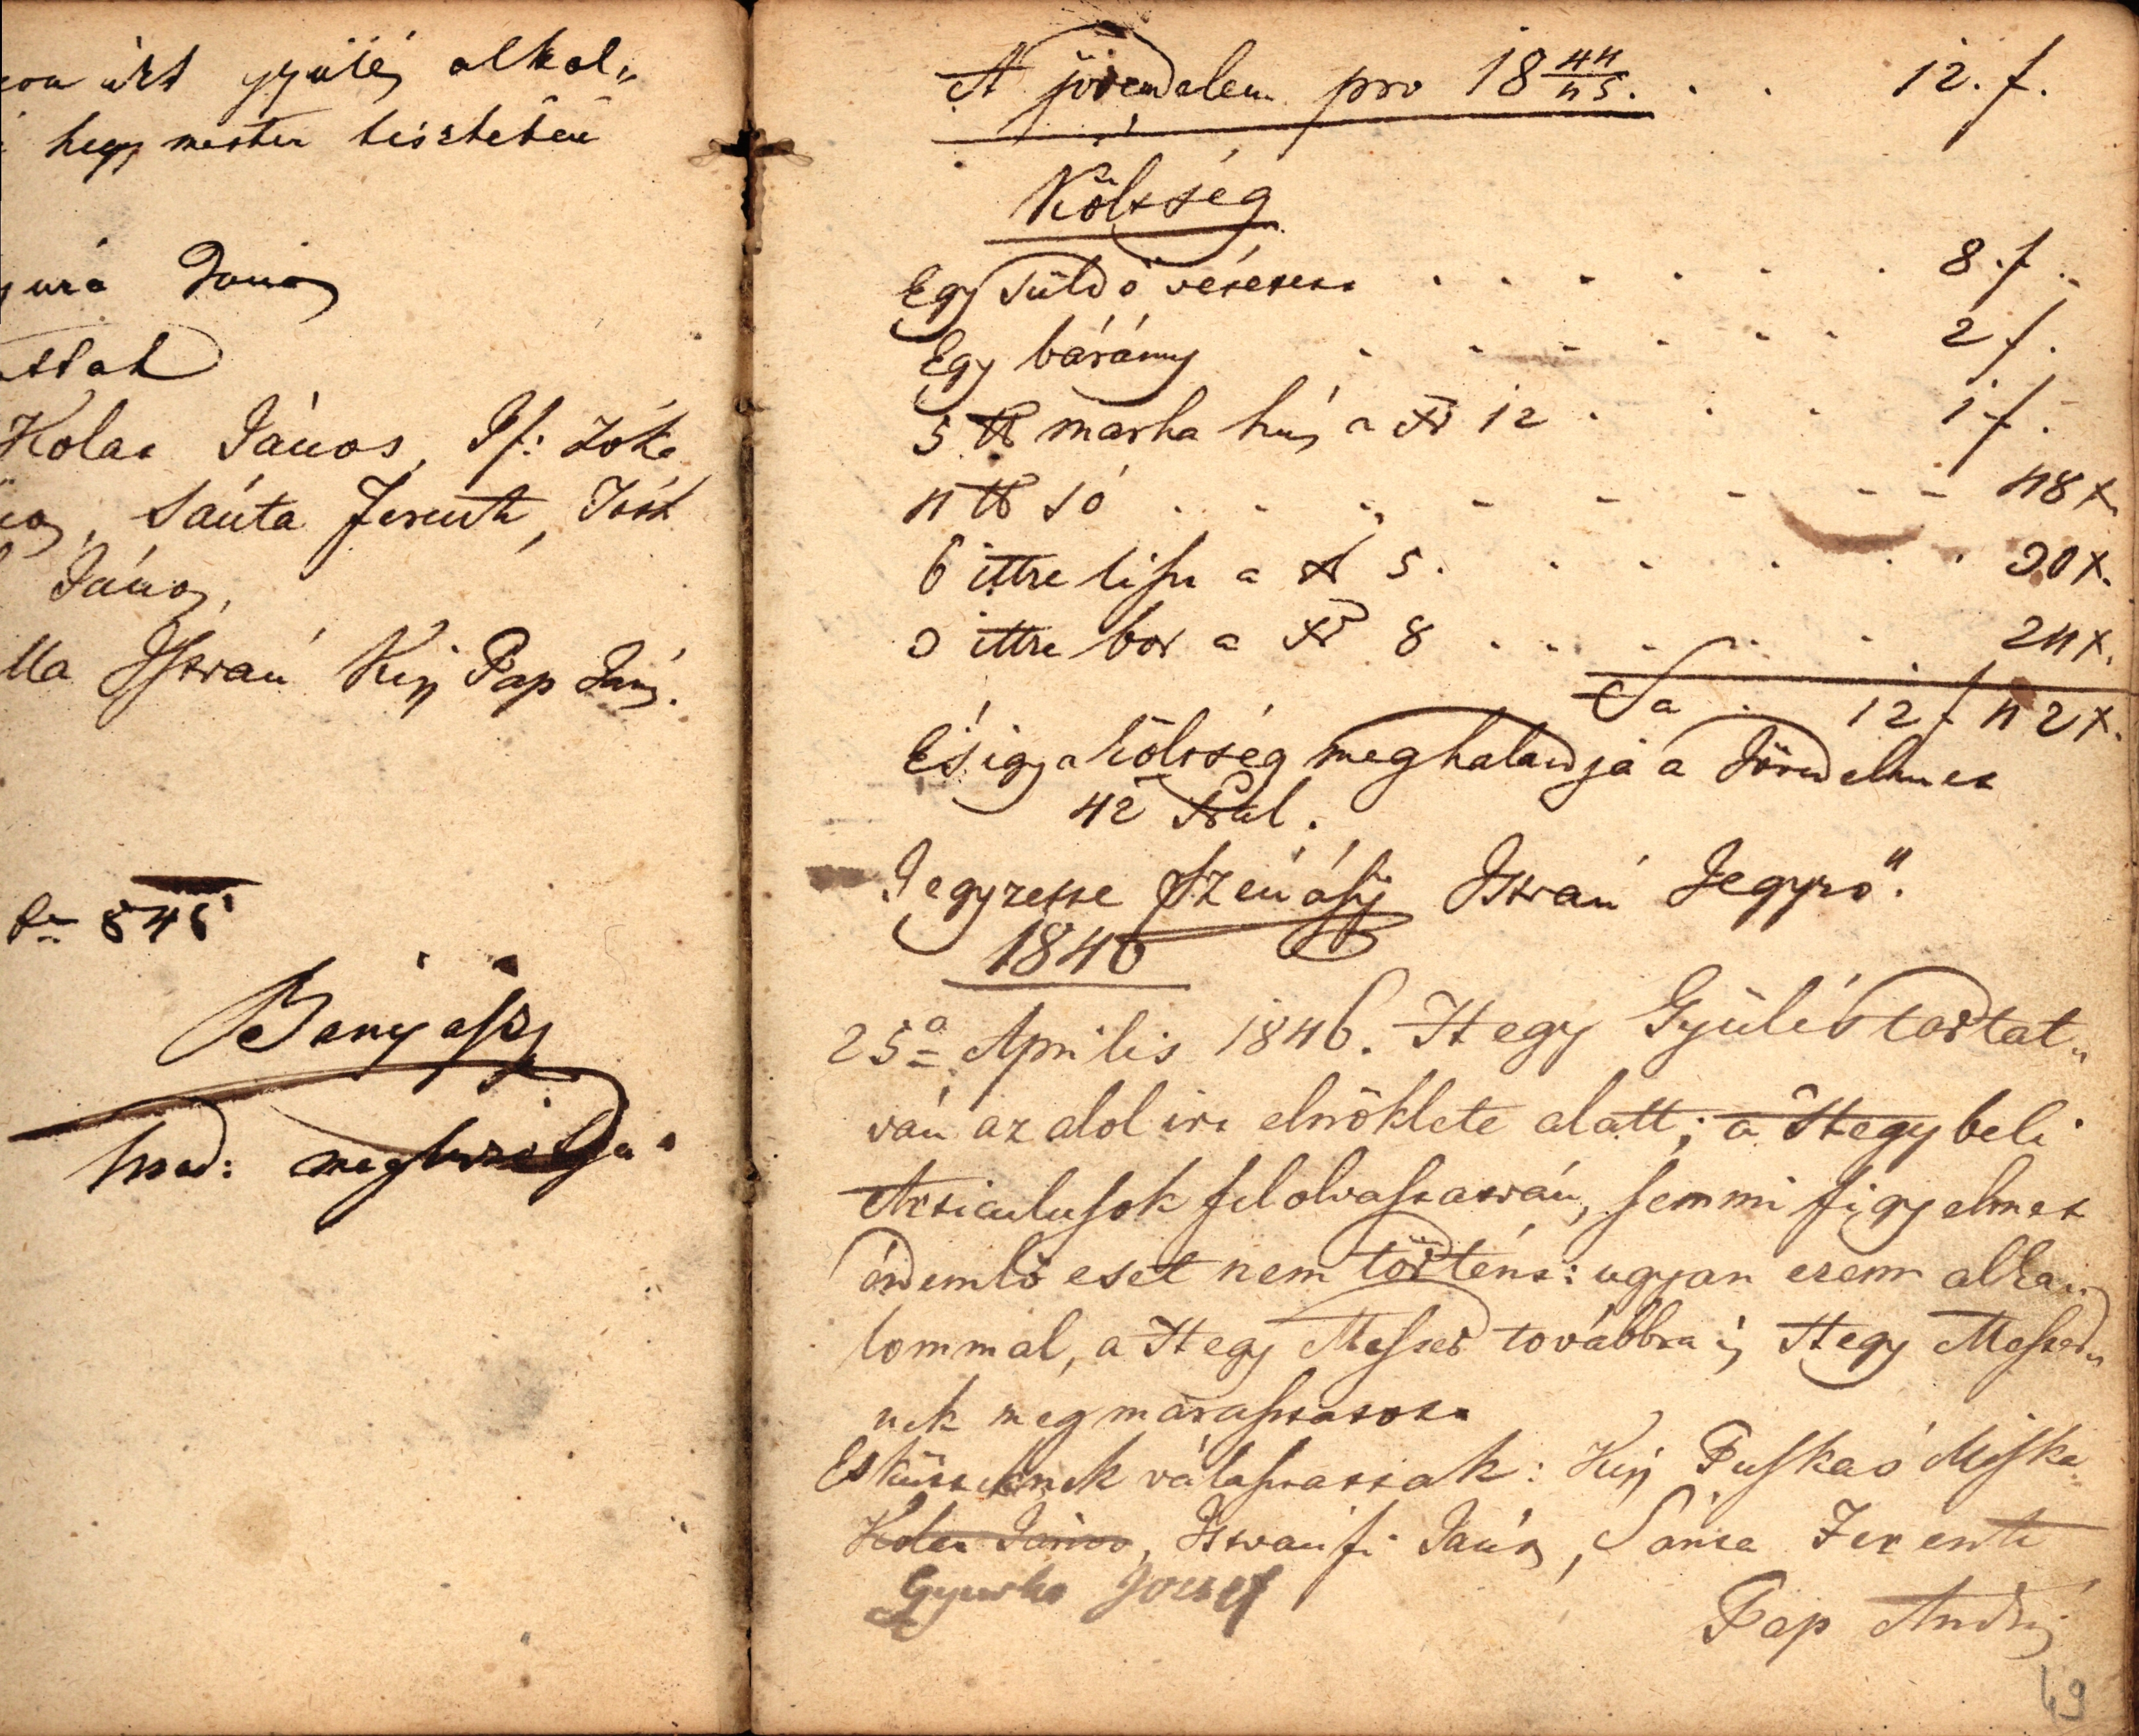 gyülés alkal„
hegy mester tisztében
János
Kolar János, If: Jóka
Sánta Ferentz, Tóth
János,
István Kis Pap János.
846
Benyászy
A jövendelem pro 18 44/45. . . 12. f.
Költség
Egy süldő vétetett . . . . . . 8. f.
Egy bárány . . . . . . 2 f.
5 ℔ marha hús a Xr 12 . . . 1 f.
4 ℔ só . . . . . . 48 x.
6 ittze liszt a Xr 5. . . . . . 30 x.
3 ittze bor a Xr 8 . . . . . 24 x.
Sa . 12 f 42 x.
És igy a költség meghaladja a Jövedelmet
42 Xral.
Jegyzette Szénásy István Jegyző.
1846
25a Április 1846. Hegy Gyülés tartat„
ván az alol irt elnöklete alatt; a Hegybeli
Articulusok felolvastatván, semmi figyelmet
érdemlő eset nem történt: ugyan ezen alka„
lommal, a Hegy Mester továbbra is Hegy Mester„
nek megmarasztatott
Eskütteknek választattak: Kis Puskás Miska
Kolar János, Istvánfi János, Sánta Ferentz
Gyurko Jozsef
Pap András
49